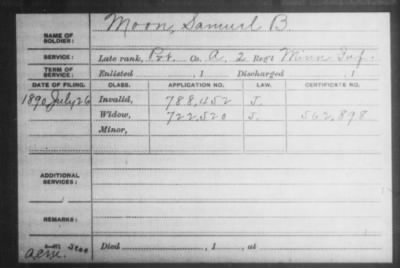 Moon, Samuel B
NAME OF SOLDIER:
SERVICE: Late rank, Pvt. Co. A, 2 Reg't Minn Inf.
TERM OF SERVICE: Enlisted , 1 Discharged , 1
DATE OF FILING. CLASS. APPLICATION NO. LAW. CERTIFICATE NO.
1890 July 26 Invalid, 788,452 J.
Widow, 722,520 J. 562,898
Minor,
ADDITIONAL SERVICES:
REMARKS:
Died , 1 , at